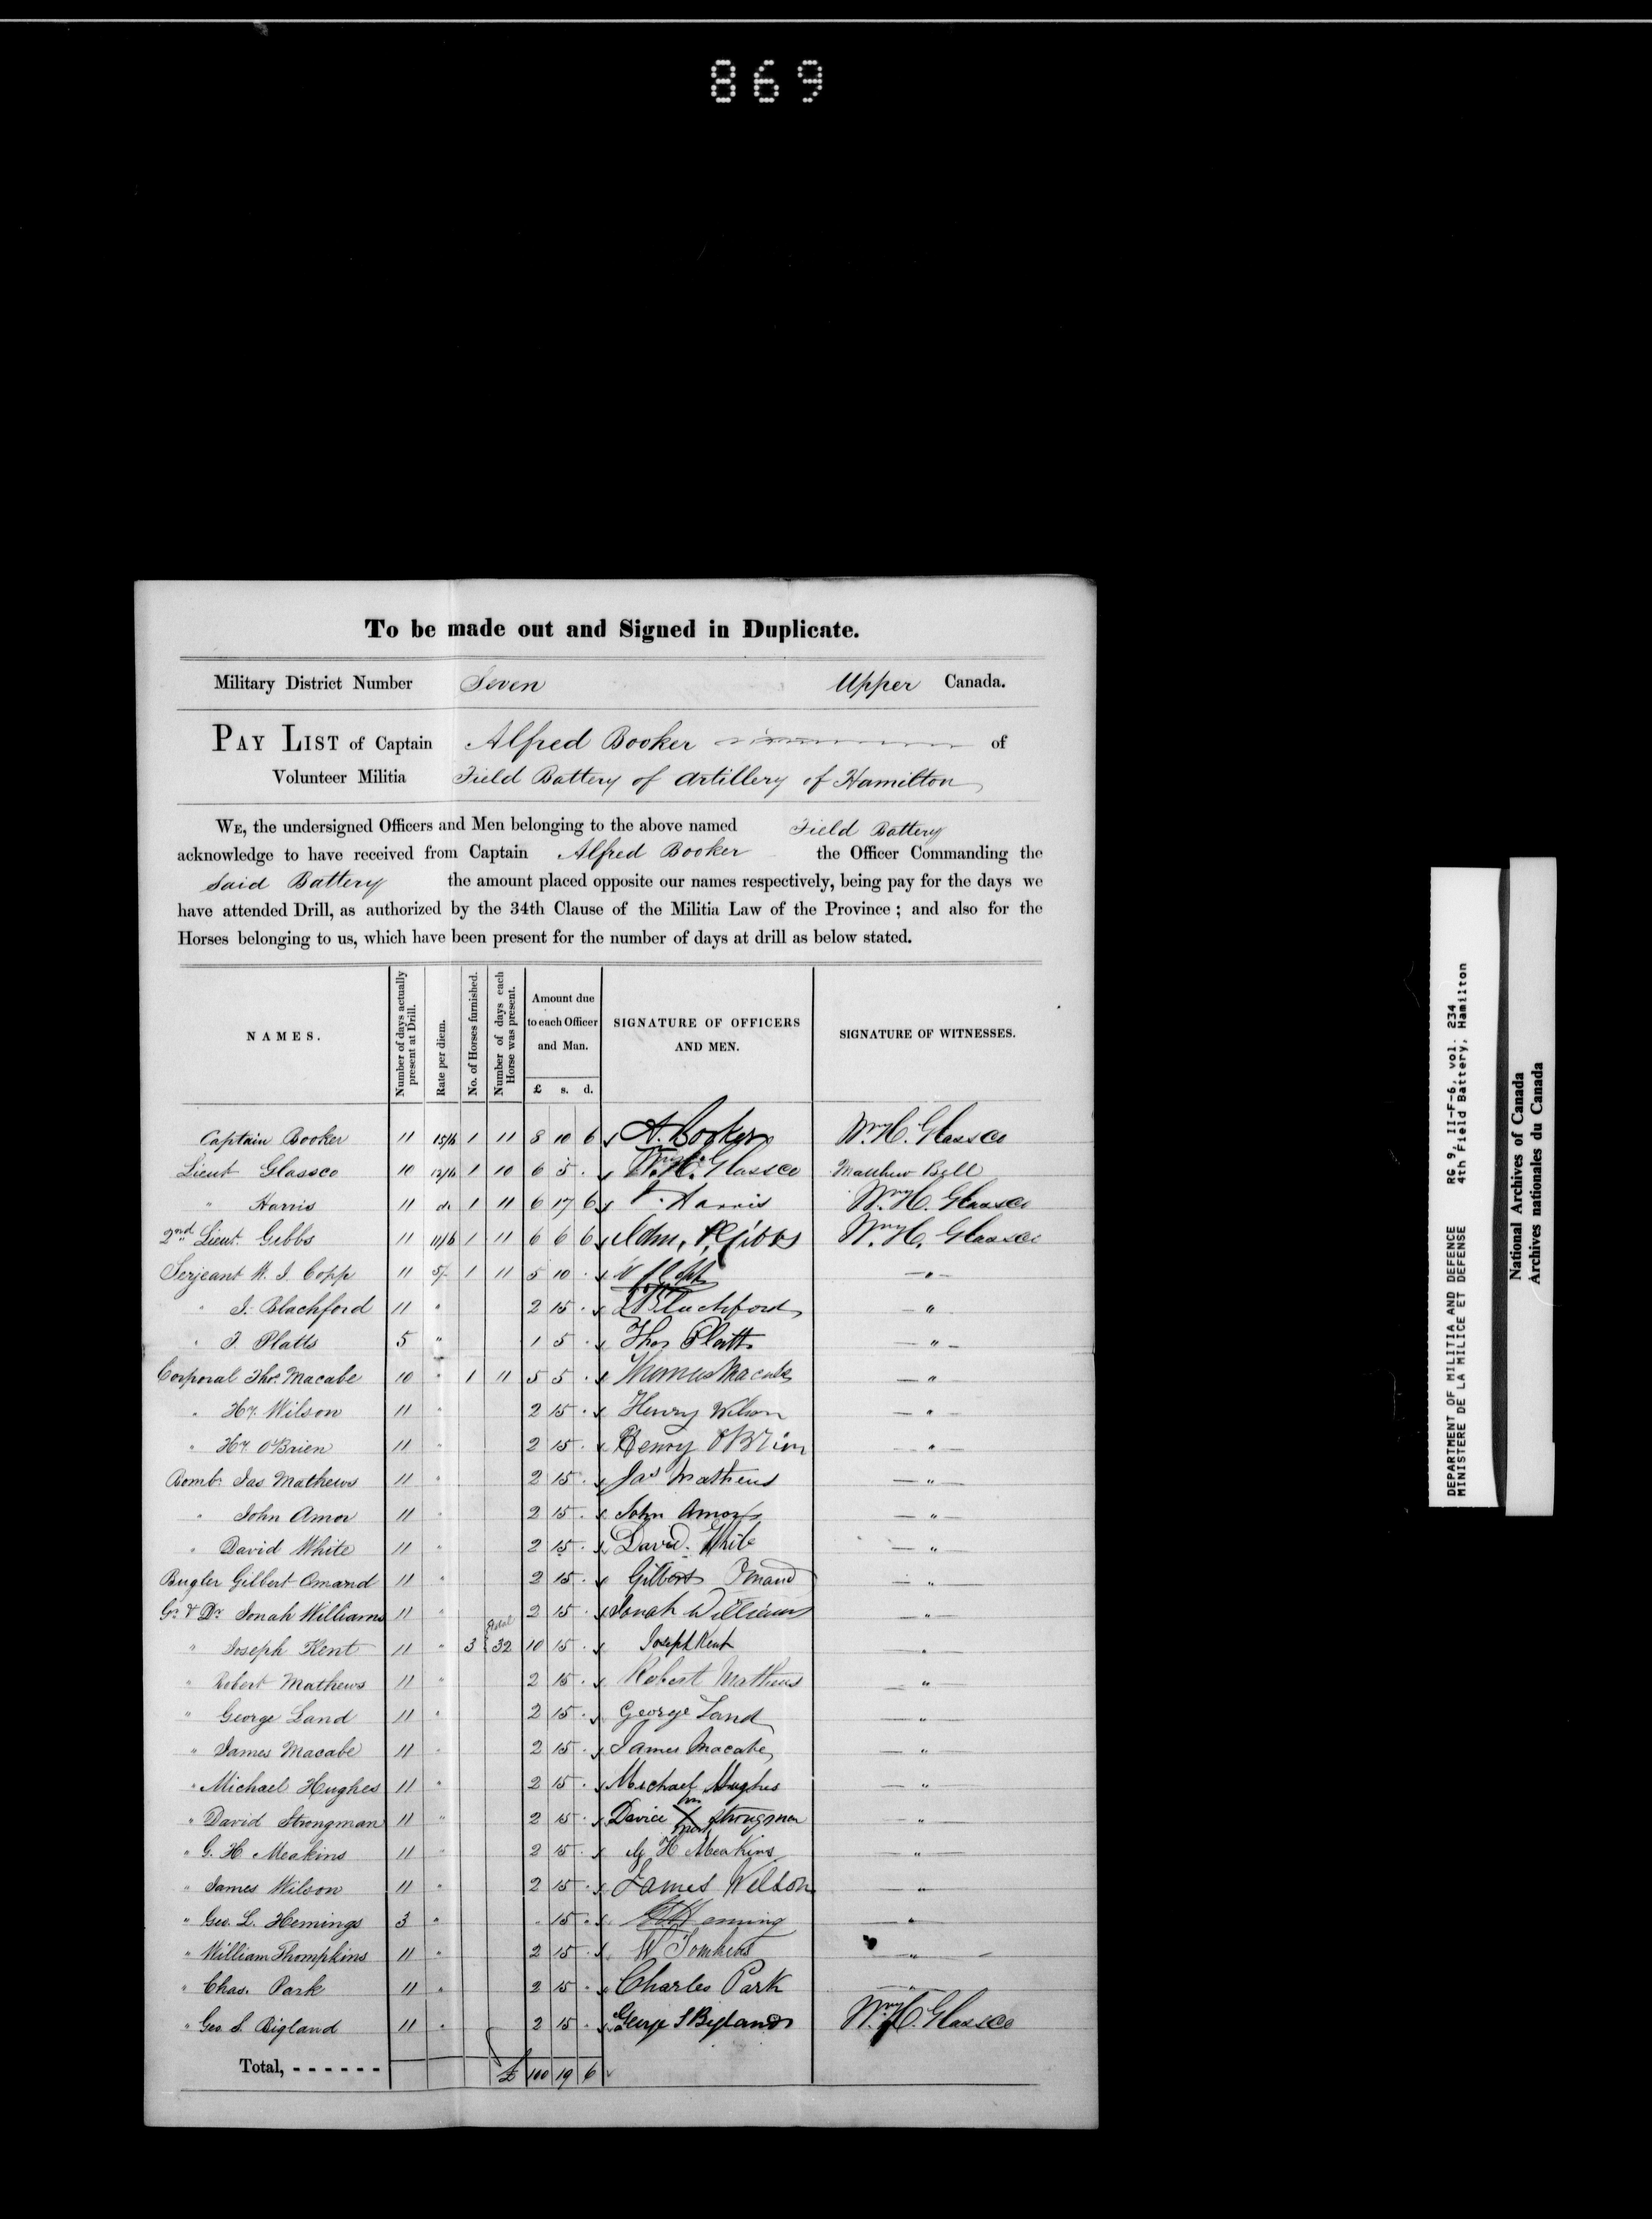 869
To be made out and Signed in Duplicate.
Military District Number Seven Upper Canada.
PAY LIST of Captain Alfred Booker of
Volunteer Militia Field Battery of Artillery of Hamilton
WE, the undersigned Officers and Men belonging to the above named Field Battery
acknowledge to have received from Captain Alfred Booker the Officer Commanding the
Said Battery the amount placed opposite our names respectively, being pay for the days we
have attended Drill, as authorized by the 34th Clause of the Militia Law of the Province; and also for the
Horses belonging to us, which have been present for the number of days at drill as below stated.
NAMES.
Number of days actually present at Drill.
Rate per diem.
No. of Horses furnished.
Number of days each Horse was present.
Amount due to each Officer and Man.
£ s. d.
SIGNATURE OF OFFICERS AND MEN.
SIGNATURE OF WITNESSES.
Captain Booker 11 15/6 1 11 8 10 6 A. Booker Wm H. Glassco
Lieut Glassco 10 12/6 1 10 6 5 . Wm H. Glassco Matthew Bell
" Harris 11 do 1 11 6 17 6 Harris Wm H. Glassco
2nd Lieut. Gibbs 11 11/6 1 11 6 6 6 Gibbs Wm H. Glassco
Serjeant W. I. Copp 11 5/- 1 11 5 10 . "
" I. Blachford 11 " 2 15 . Blachford "
" T. Platts 5 " 1 5 . Thos Platts "
Corporal Thos. Macabe 10 " 1 11 5 5 . Thomas Macabe "
" Hy. Wilson 11 " 2 15 . Henry Wilson "
" Hy. O'Brien 11 " 2 15 . Henry O'Brien "
Bomb. Jas Mathews 11 " 2 15 . Jas Mathews "
" John Amor 11 " 2 15 . John Amor "
" David White 11 " 2 15 . David White "
Bugler Gilbert Omand 11 " 2 15 . Gilbert Omand "
Gr. & Dr. Jonah Williams 11 " 2 15 . Jonah Williams "
" Joseph Kent 11 " 3 Total 32 10 15 . Joseph Kent "
" Robert Mathews 11 " 2 15 . Robert Mathews "
" George Land 11 " 2 15 . George Land "
" James Macabe 11 " 2 15 . James Macabe "
" Michael Hughes 11 " 2 15 . Michael Hughes "
" David Strongman 11 " 2 15 . David his X mark Strongman "
" G. H Meakins 11 " 2 15 . G H Meakins "
" James Wilson 11 " 2 15 . James Wilson "
" Geo. L. Hemings 3 " . 15 . Heming "
" William Thompkins 11 " 2 15 . W Tomkins "
" Chas. Park 11 " 2 15 . Charles Park "
" Geo S. Bigland 11 " 2 15 . George S Bigland Wm H. Glassco
Total, - - - - - - £ 100 19 6
DEPARTMENT OF MILITIA AND DEFENCE RG 9, II-F-6, vol. 234
MINISTERE DE LA MILICE ET DEFENSE 4th Field Battery, Hamilton
National Archives of Canada
Archives nationales du Canada